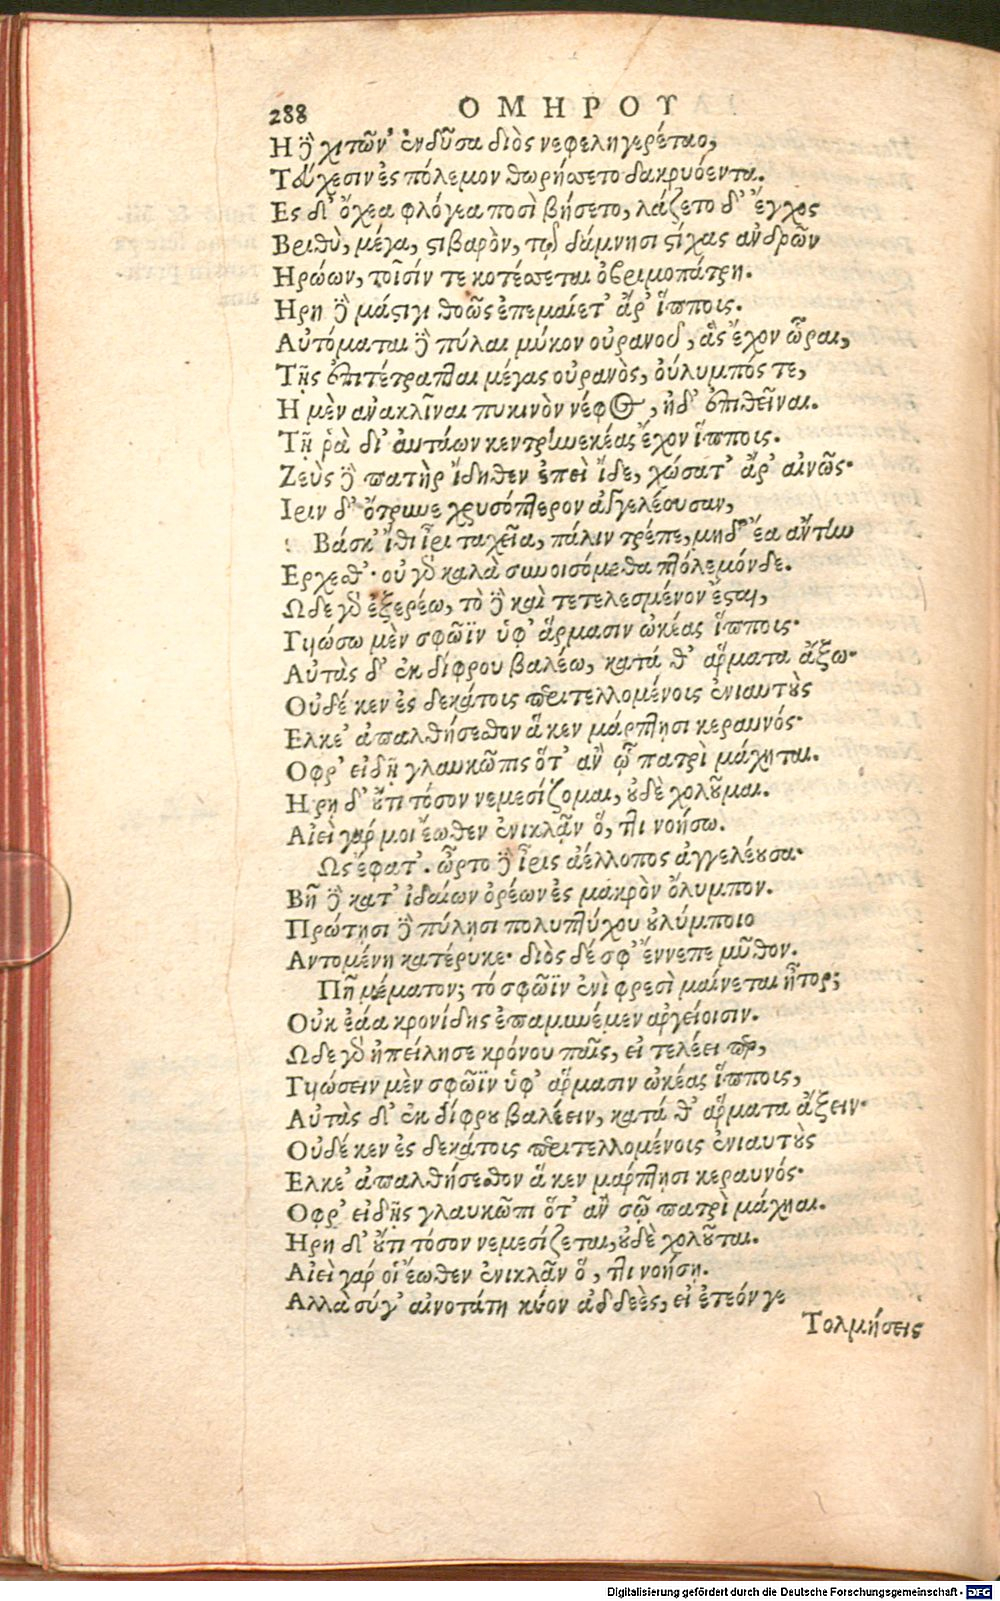 288 ΟΜΗΡΟΥ
Η δὲ χιτῶν' ἐνδῦσα διὸς νεφεληγερέταο,
Τεύχεσιν ἐς πόλεμον θωρήσσετο δακρυόεντα.
Ες δ' ὄχεα φλόγεα ποσὶ βήσετο, λάζετο δ' ἔγχος
Βριθὺ, μέγα, στιβαρὸν, τῷ δάμνησι στίχας ανδρῶν
Ηρώων, τοῖσίν τε κοτέσσεται ὀβριμοπάτρη.
Ηρη δὲ μάστιγι θοῶς ἐπεμαίετ' ἄρ' ἵππους.
Αὐτόμαται δὲ πύλαι μύκον οὐρανοῦ, ἃς ἔχον ὧραι,
Τῇς ἐπιτέτραπται μέγας οὐρανὸς, οὐλυμπός τε,
Η μὲν ἀνακλῖναι πυκινὸν νέφος, ἠδ' ἐπιθεῖναι.
Τῇ ῥὰ δι' ἀυτάων κεντρηνεκέας ἔχον ἵππους.
Ζεὺς δὲ πατὴρ ἴδηθεν ἐπεὶ ἴδε, χώσατ' ἄρ' αἰνῶς·
Ιριν δ' ὄτρυνε χρυσόπτερον ἀγγελέουσαν,
Βάσκ' ἴθι ἶρι ταχεῖα, πάλιν τρέπε, μηδ' ἔα ἄντην
Ερχεσθ'· οὐ γὰρ καλὰ συνοισόμεθα πτόλεμόνδε.
Ωδε γὰρ ἐξερέω, τὸ δὲ καὶ τετελεσμένον ἔσται,
Γυώσω μὲν σφῶϊν ὑφ' ἅρμασιν ὠκέας ἵππους·
Αὐτὰς δ' ἐκ δίφρου βαλέω, κατά θ' ἅρματα ἄξω·
Οὐδέ κεν ἐς δεκάτους περιτελλομένους ἐνιαυτοὺς
Ελκε' ἀπαλθήσεσθον ἅ κεν μάρπτησι κεραυνός·
Οφρ' εἰδῇ γλαυκῶπις ὅτ' ἂν ᾧ πατρὶ μάχηται.
Ηρη δ' οὔτι τόσον νεμεσίζομαι, οὐδὲ χολοῦμαι.
Αἰεὶ γάρ μοι ἔωθεν ἐνικλᾷν ὅ, ττι νοήσω.
Ως ἔφατ'. ὦρτο δὲ ἶρις ἀέλλοπος ἀγγελέουσα·
Βῆ δὲ κατ' ἰδαίων ὀρέων ἐς μακρὸν ὄλυμπον.
Πρώτησι δὲ πύλησι πολυπτύχου οὐλύμποιο
Αντομένη κατέρυκε· διὸς δέ σφ' ἔννεπε μῦθον.
Πῆ μέματον; τό σφῶϊν ἐνὶ φρεσὶ μαίνεται ἦτορ;
Οὐκ ἐάα κρονίδης ἐπαμυνέμεν ἀργείοισιν.
Ωδε γὰρ ἠπείλησε κρόνου παῖς, εἰ τελέει περ,
Γυώσειν μὲν σφῶϊν ὑφ' ἅρμασιν ὠκέας ἵππους,
Αὐτὰς δ' ἐκ δίφρου βαλέειν, κατά θ' ἅρματα ἄξειν·
Οὐδέ κεν ἐς δεκάτους περιτελλομένους ἐνιαυτοὺς
Ελκε' ἀπαλθήσεσθον ἅ κεν μάρπτησι κεραυνός·
Οφρ' εἰδῇς γλαυκῶπι ὅτ' ἂν σῷ πατρὶ μάχηαι.
Ηρη δ' οὔτι τόσον νεμεσίζεται, οὐδὲ χολοῦται.
Αἰεὶ γάρ οἱ ἔωθεν ἐνικλᾷν ὅ, ττι νοήσῃ.
Αλλὰ σύγ' αἰνοτάτη κύον ἀδδεὲς, εἰ ἐτεόν γε
Τολμήσεις
Digitalisierung gefördert durch die Deutsche Forschungsgemeinschaft - DFG